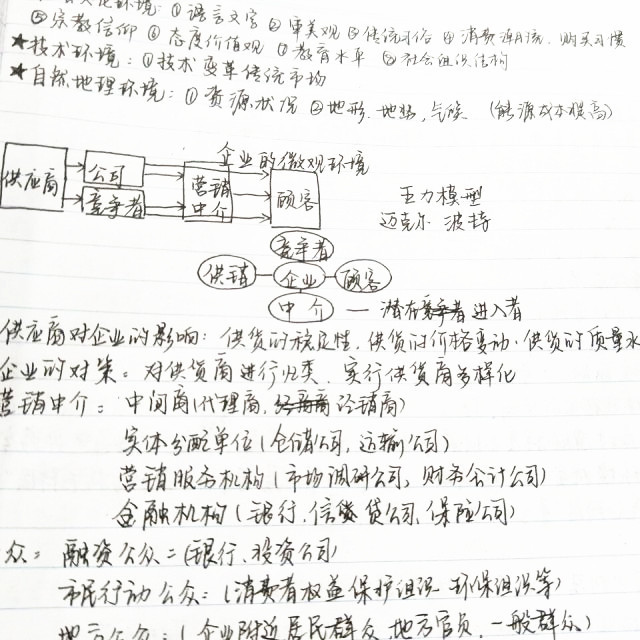 文化环境：①语言文字 ②审美观 ③传统习俗 ④消费潮流、购买习惯
⑤宗教信仰 ⑥态度价值观 ⑦教育水平 ⑧社会组织结构
★技术环境：①技术变革传统市场
★自然地理环境：①资源状况 ②地形、地势、气候 (能源成本提高)
企业的微观环境
供应商
公司
竞争者
营销中介
顾客
五力模型
迈克尔 波特
竞争者
供销 企业 顾客
中介 — 潜在竞争者进入者
供应商对企业的影响：供货的稳定性、供货的价格变动、供货的质量水
企业的对策：对供货商进行归类、实行供货商多样化
营销中介：中间商(代理商、经销商)
实体分配单位(仓储公司、运输公司)
营销服务机构(市场调研公司、财务会计公司)
金融机构(银行、信贷公司、保险公司)
众：融资公众：(银行、投资公司)
市民行动公众：(消费者权益保护组织 环保组织等)
地方公众：(企业附近居民群众、地方官员、一般群众)